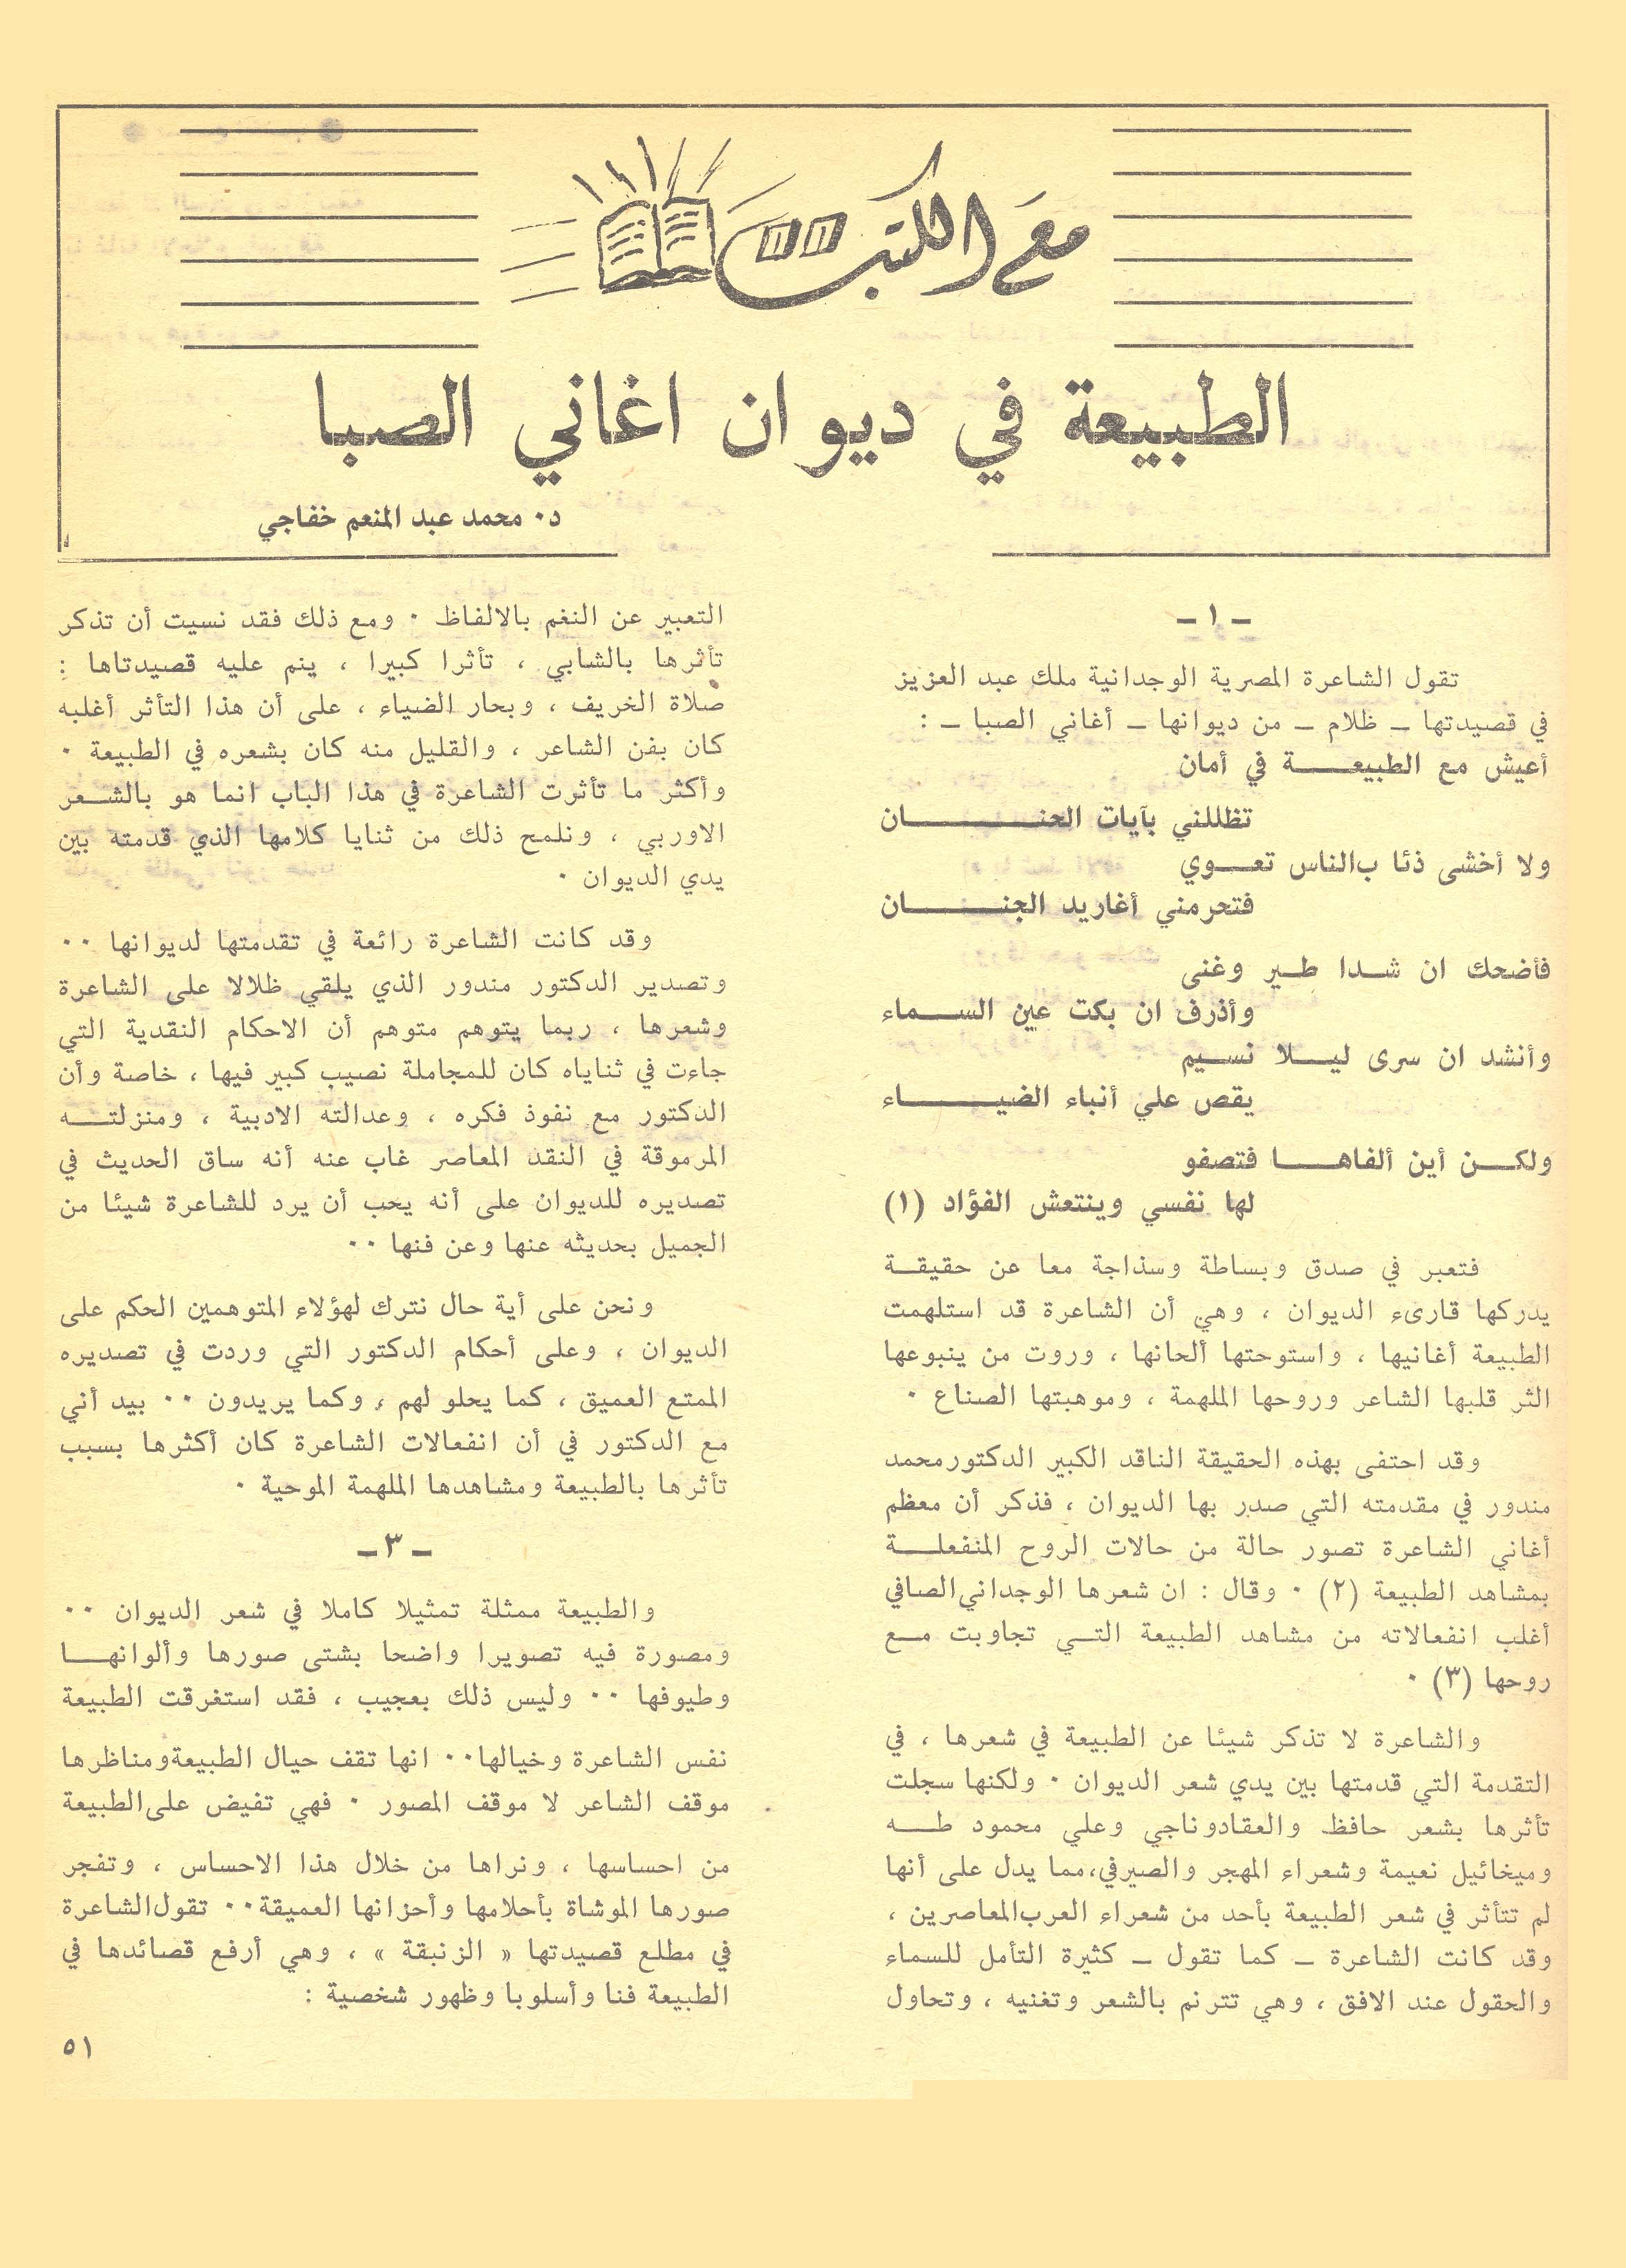 مع الكتب
الطبيعة في ديوان اغاني الصبا
د٠ محمد عبد المنعم خفاجي
ـ ١ ـ
تقول الشاعرة المصرية الوجدانية ملك عبد العزيز
في قصيدتها ـ ظلام ـ من ديوانها ـ أغاني الصبا ـ :
أعيش مع الطبيعـــة في أمان
تظللني بآيات الحنـــــان
ولا أخشى ذئا ب‌الناس تعـــوي
فتحرمني أغاريد الجنـــــان
فأضحك ان شــدا طــير وغنى
وأذرف ان بكت عين الســـماء
وأنشد ان سرى ليـــلا نســيم
يقص علي أنباء الضيـــــاء
ولكـــن أين ألقاهـــا فتصفو
لها نفسي وينتعش الفؤاد (١)
فتعبر في صدق وبساطة وسذاجة معا عن حقيقــة
يدركها قارىء الديوان ، وهي أن الشاعرة قد استلهمت
الطبيعة أغانيها ، واستوحتها ألحانها ، وروت من ينبوعها
الثر قلبها الشاعر وروحها الملهمة ، وموهبتها الصناع ٠
وقد احتفى بهذه الحقيقة الناقد الكبير الدكتور محمد
مندور في مقدمته التي صدر بها الديوان ، فذكر أن معظم
أغاني الشاعرة تصور حالة من حالات الروح المنفعلــة
بمشاهد الطبيعة (٢) ٠ وقال : ان شعرها الوجداني الصافي
أغلب انفعالاته من مشاهد الطبيعة التــي تجاوبت مــع
روحها (٣) ٠
والشاعرة لا تذكر شيئا عن الطبيعة في شعرها ، في
التقدمة التي قدمتها بين يدي شعر الديوان ٠ ولكنها سجلت
تأثرها بشعر حافظ والعقاد وناجي وعلي محمود طــه
وميخائيل نعيمة وشعراء المهجر والصيرفي، مما يدل على أنها
لم تتأثر في شعر الطبيعة بأحد من شعراء العرب المعاصرين ،
وقد كانت الشاعرة ـ كما تقول ـ كثيرة التأمل للسماء
والحقول عند الافق ، وهي تترنم بالشعر وتغنيه ، وتحاول
التعبير عن النغم بالالفاظ ٠ ومع ذلك فقد نسيت أن تذكر
تأثرها بالشابي ، تأثرا كبيرا ، ينم عليه قصيدتاها :
صلاة الخريف ، وبحار الضياء ، على أن هذا التأثر أغلبه
كان بفن الشاعر ، والقليل منه كان بشعره في الطبيعة ٠
وأكثر ما تأثرت الشاعرة في هذا الباب انما هو بالشــعر
الاوربي ، ونلمح ذلك من ثنايا كلامها الذي قدمته بين
يدي الديوان ٠
وقد كانت الشاعرة رائعة في تقدمتها لديوانها ٠٠
وتصدير الدكتور مندور الذي يلقي ظلالا على الشاعرة
وشعرها ، ربما يتوهم متوهم أن الاحكام النقدية التي
جاءت في ثناياه كان للمجاملة نصيب كبير فيها ، خاصة وأن
الدكتور مع نفوذ فكره ، وعدالته الادبية ، ومنزلتــه
المرموقة في النقد المعاصر غاب عنه أنه ساق الحديث في
تصديره للديوان على أنه يحب أن يرد للشاعرة شيئا من
الجميل بحديثه عنها وعن فنها ٠٠
ونحن على أية حال نترك لهؤلاء المتوهمين الحكم على
الديوان ، وعلى أحكام الدكتور التي وردت في تصديره
الممتع العميق ، كما يحلو لهم ، وكما يريدون ٠٠ بيد أني
مع الدكتور في أن انفعالات الشاعرة كان أكثرها بسبب
تأثرها بالطبيعة ومشاهدها الملهمة الموحية ٠
ـ ٣ ـ
والطبيعة ممثلة تمثيلا كاملا في شعر الديوان ٠٠
ومصورة فيه تصويرا واضحا بشتى صورها وألوانهــا
وطيوفها ٠٠ وليس ذلك بعجيب ، فقد استغرقت الطبيعة
نفس الشاعرة وخيالها٠٠ انها تقف حيال الطبيعة ومناظرها
موقف الشاعر لا موقف المصور ٠ فهي تفيض على الطبيعة
من احساسها ، ونراها من خلال هذا الاحساس ، وتفجر
صورها الموشاة بأحلامها وأحزانها العميقة٠٠ تقول الشاعرة
في مطلع قصيدتها « الزنبقة » ، وهي أرفع قصائدها في
الطبيعة فنا وأسلوبا وظهور شخصية :
٥١